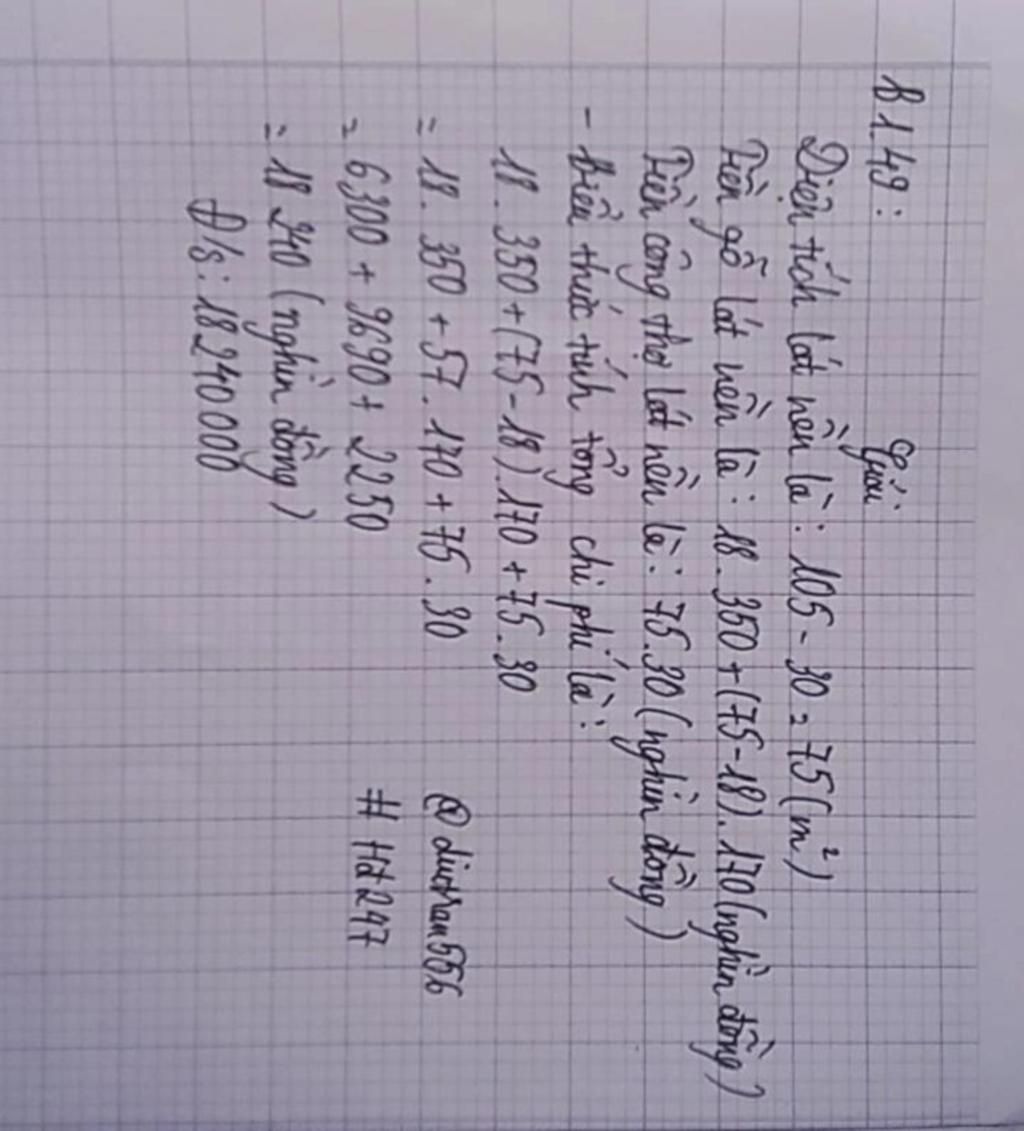 B1.49:
Giải
Diện tích lát nền là: 105 - 30 = 75 (m²)
Tiền gỗ lát nền là: 18.350 + (75-18).170 (nghìn đồng)
Tiền công thợ lát nền là: 75.30 (nghìn đồng)
- Biểu thức tính tổng chi phí là:
18.350 + (75-18).170 + 75.30
= 18.350 + 57.170 + 75.30
= 6300 + 9690 + 2250
= 18 240 (nghìn đồng)
Đ/s: 18 240 000
# Hd247